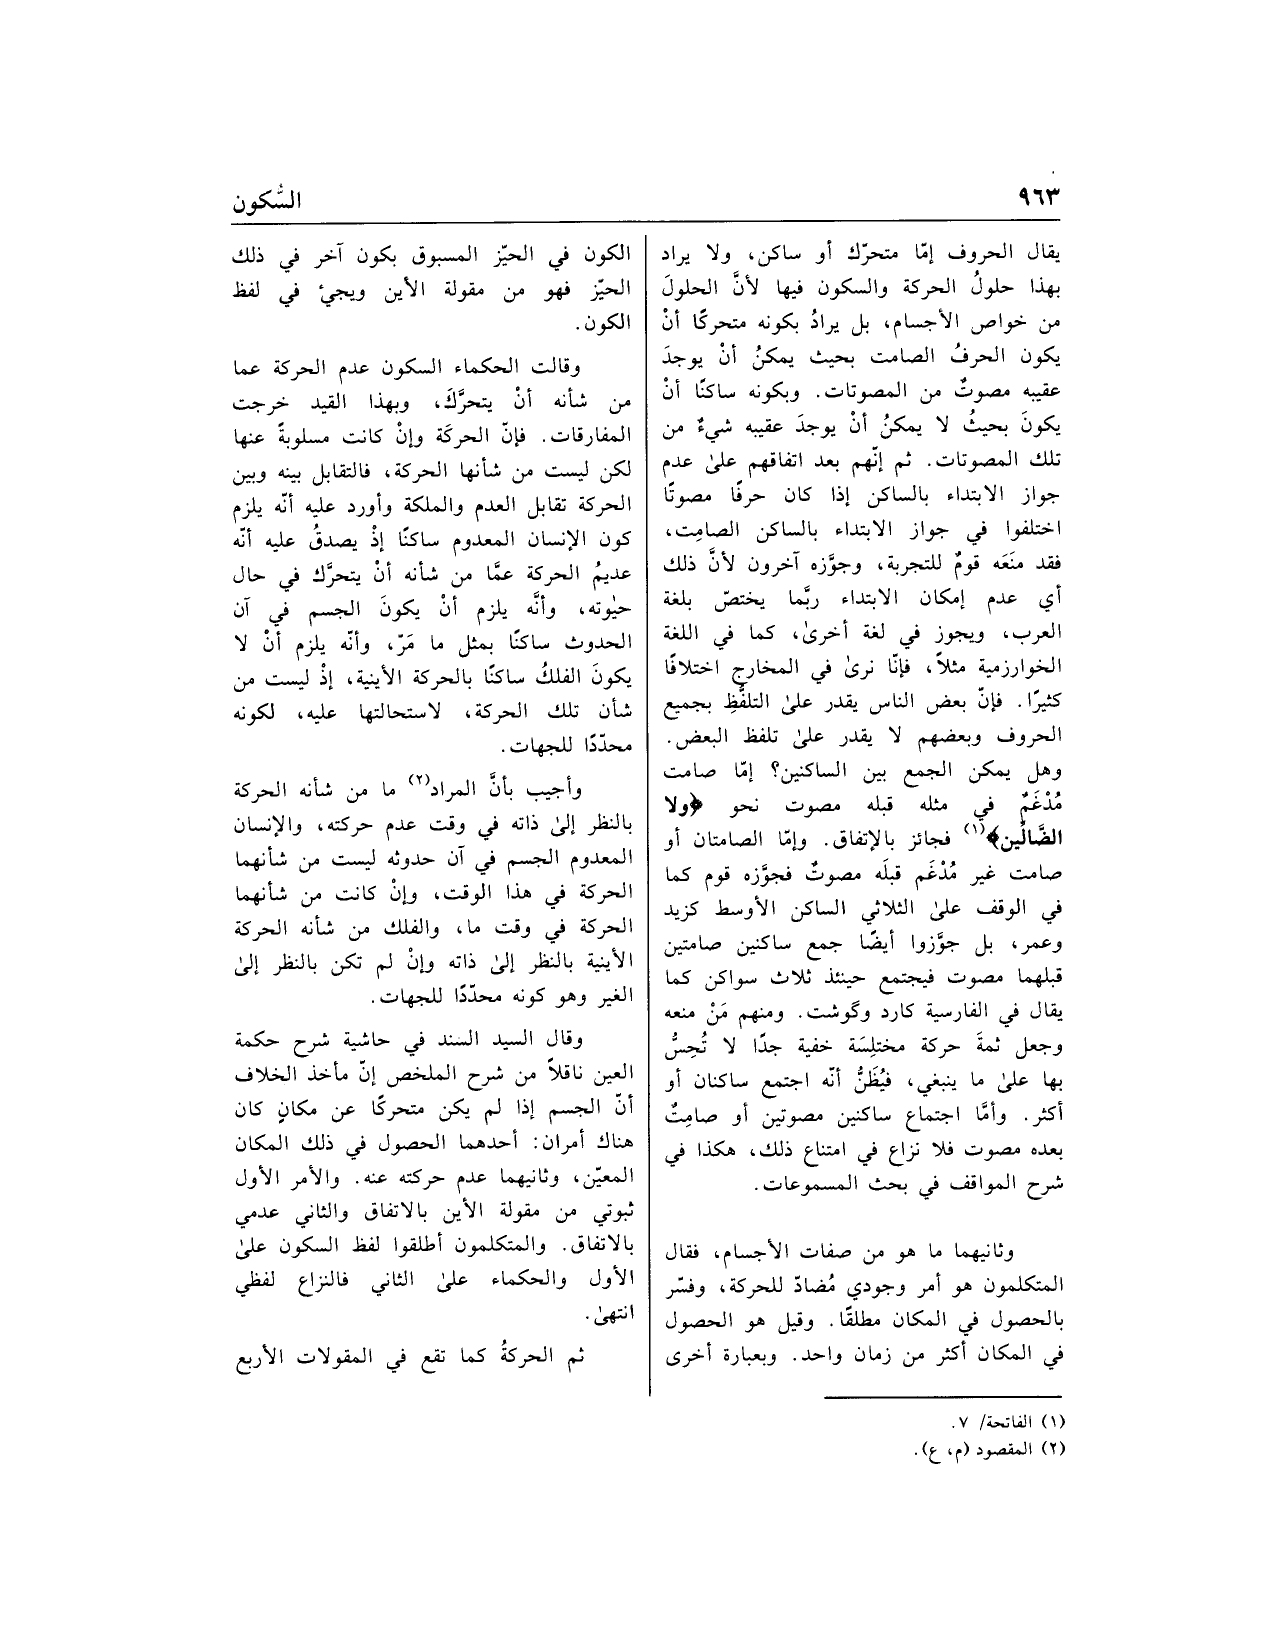 ٩٦٣
السُّكون
يقال الحروف إمّا متحرّك أو ساكن، ولا يراد
بهذا حلولُ الحركة والسكون فيها لأنَّ الحلولَ
من خواص الأجسام، بل يرادُ بكونه متحركًا أنْ
يكون الحرفُ الصامت بحيث يمكنُ أنْ يوجدَ
عقيبه مصوتٌ من المصوتات. وبكونه ساكنًا أنْ
يكونَ بحيثُ لا يمكنُ أنْ يوجدَ عقيبه شيءٌ من
تلك المصوتات. ثم إنّهم بعد اتفاقهم علىٰ عدم
جواز الابتداء بالساكن إذا كان حرفًا مصوتًا
اختلفوا في جواز الابتداء بالساكن الصامِت،
فقد منَعَه قومٌ للتجربة، وجوَّزه آخرون لأنَّ ذلك
أي عدم إمكان الابتداء ربَّما يختصّ بلغة
العرب، ويجوز في لغة أخرىٰ، كما في اللغة
الخوارزمية مثلاً، فإنّا نرىٰ في المخارج اختلافًا
كثيرًا. فإنّ بعض الناس يقدر علىٰ التلفُّظِ بجميع
الحروف وبعضهم لا يقدر علىٰ تلفظ البعض.
وهل يمكن الجمع بين الساكنين؟ إمّا صامت
مُدْغَمٌ في مثله قبله مصوت نحو ﴿ولا
الضَّالّين﴾(١) فجائز بالإتفاق. وإمّا الصامتان أو
صامت غير مُدْغَم قبلَه مصوتٌ فجوَّزه قوم كما
في الوقف علىٰ الثلاثي الساكن الأوسط كزيد
وعمر، بل جوَّزوا أيضًا جمع ساكنين صامتين
قبلهما مصوت فيجتمع حينئذ ثلاث سواكن كما
يقال في الفارسية كارد وگوشت. ومنهم مَنْ منعه
وجعل ثمةَ حركة مختلِسَة خفية جدًا لا تُحِسُّ
بها علىٰ ما ينبغي، فيُظَنُّ أنّه اجتمع ساكنان أو
أكثر. وأمَّا اجتماع ساكنين مصوتين أو صامِتٌ
بعده مصوت فلا نزاع في امتناع ذلك، هكذا في
شرح المواقف في بحث المسموعات.
وثانيهما ما هو من صفات الأجسام، فقال
المتكلمون هو أمر وجودي مُضادّ للحركة، وفسّر
بالحصول في المكان مطلقًا. وقيل هو الحصول
في المكان أكثر من زمان واحد. وبعبارة أخرى
الكون في الحيّز المسبوق بكون آخر في ذلك
الحيّز فهو من مقولة الأين ويجئ في لفظ
الكون.
وقالت الحكماء السكون عدم الحركة عما
من شأنه أنْ يتحرَّكَ، وبهذا القيد خرجت
المفارقات. فإنّ الحركَة وإنْ كانت مسلوبةً عنها
لكن ليست من شأنها الحركة، فالتقابل بينه وبين
الحركة تقابل العدم والملكة وأورد عليه أنّه يلزم
كون الإنسان المعدوم ساكنًا إذْ يصدقُ عليه أنّه
عديمُ الحركة عمَّا من شأنه أنْ يتحرَّك في حال
حيٰوته، وأنَّه يلزم أنْ يكونَ الجسم في آن
الحدوث ساكنًا بمثل ما مَرّ، وأنّه يلزم أنْ لا
يكونَ الفلكُ ساكنًا بالحركة الأينية، إذْ ليست من
شأن تلك الحركة، لاستحالتها عليه، لكونه
محدّدًا للجهات.
وأجيب بأنَّ المراد(٢) ما من شأنه الحركة
بالنظر إلىٰ ذاته في وقت عدم حركته، والإنسان
المعدوم الجسم في آن حدوثه ليست من شأنهما
الحركة في هذا الوقت، وإنْ كانت من شأنهما
الحركة في وقت ما، والفلك من شأنه الحركة
الأينية بالنظر إلىٰ ذاته وإنْ لم تكن بالنظر إلىٰ
الغير وهو كونه محدّدًا للجهات.
وقال السيد السند في حاشية شرح حكمة
العين ناقلاً من شرح الملخص إنّ مأخذ الخلاف
أنّ الجسم إذا لم يكن متحركًا عن مكانٍ كان
هناك أمران: أحدهما الحصول في ذلك المكان
المعيّن، وثانيهما عدم حركته عنه. والأمر الأول
ثبوتي من مقولة الأين بالاتفاق والثاني عدمي
بالاتفاق. والمتكلمون أطلقوا لفظ السكون علىٰ
الأول والحكماء علىٰ الثاني فالنزاع لفظي
انتهىٰ.
ثم الحركةُ كما تقع في المقولات الأربع
(١) الفاتحة/ ٧.
(٢) المقصود (م، ع).